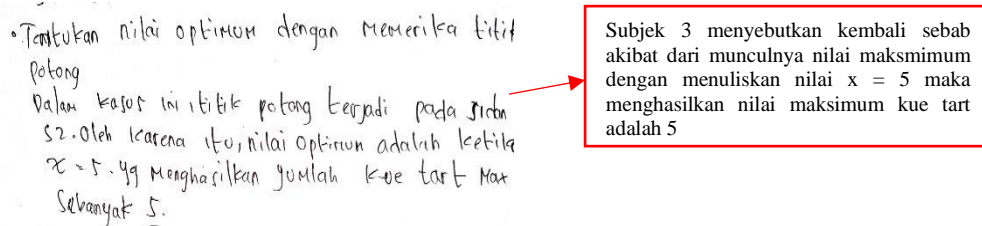 • Tentukan nilai optimum dengan memerika titik
potong
Dalam kasus ini, titik potong terjadi pada
S2. Oleh karena itu, nilai optimum adalah ketika
x = 5. yg menghasilkan jumlah kue tart max
Sebanyak 5.
Subjek 3 menyebutkan kembali sebab
akibat dari munculnya nilai maksmimum
dengan menuliskan nilai x = 5 maka
menghasilkan nilai maksimum kue tart
adalah 5